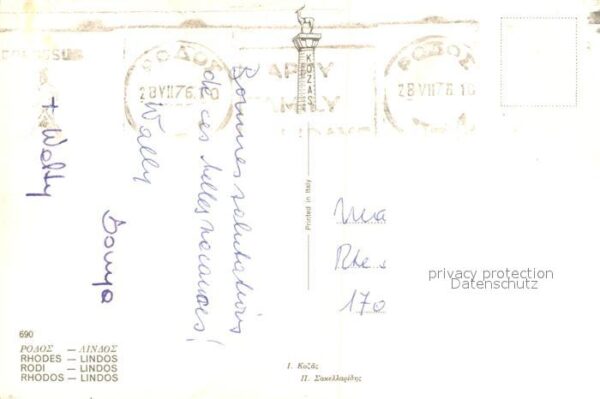 ΡΟΔΟΣ
28 VII 76. 10
HAPPY
FAMILY
ΡΟΔΟΣ
28 VII 76. 10
KOZAS
Bonnes salutations
de ces belles vacances!
Wally
+ Walty
Printed in Italy
170
privacy protection
Datenschutz
690
ΡΟΔΟΣ — ΛΙΝΔΟΣ
RHODES — LINDOS
RODI — LINDOS
RHODOS — LINDOS
Ι. Κοζᾶς
Π. Σακελλαρίδης